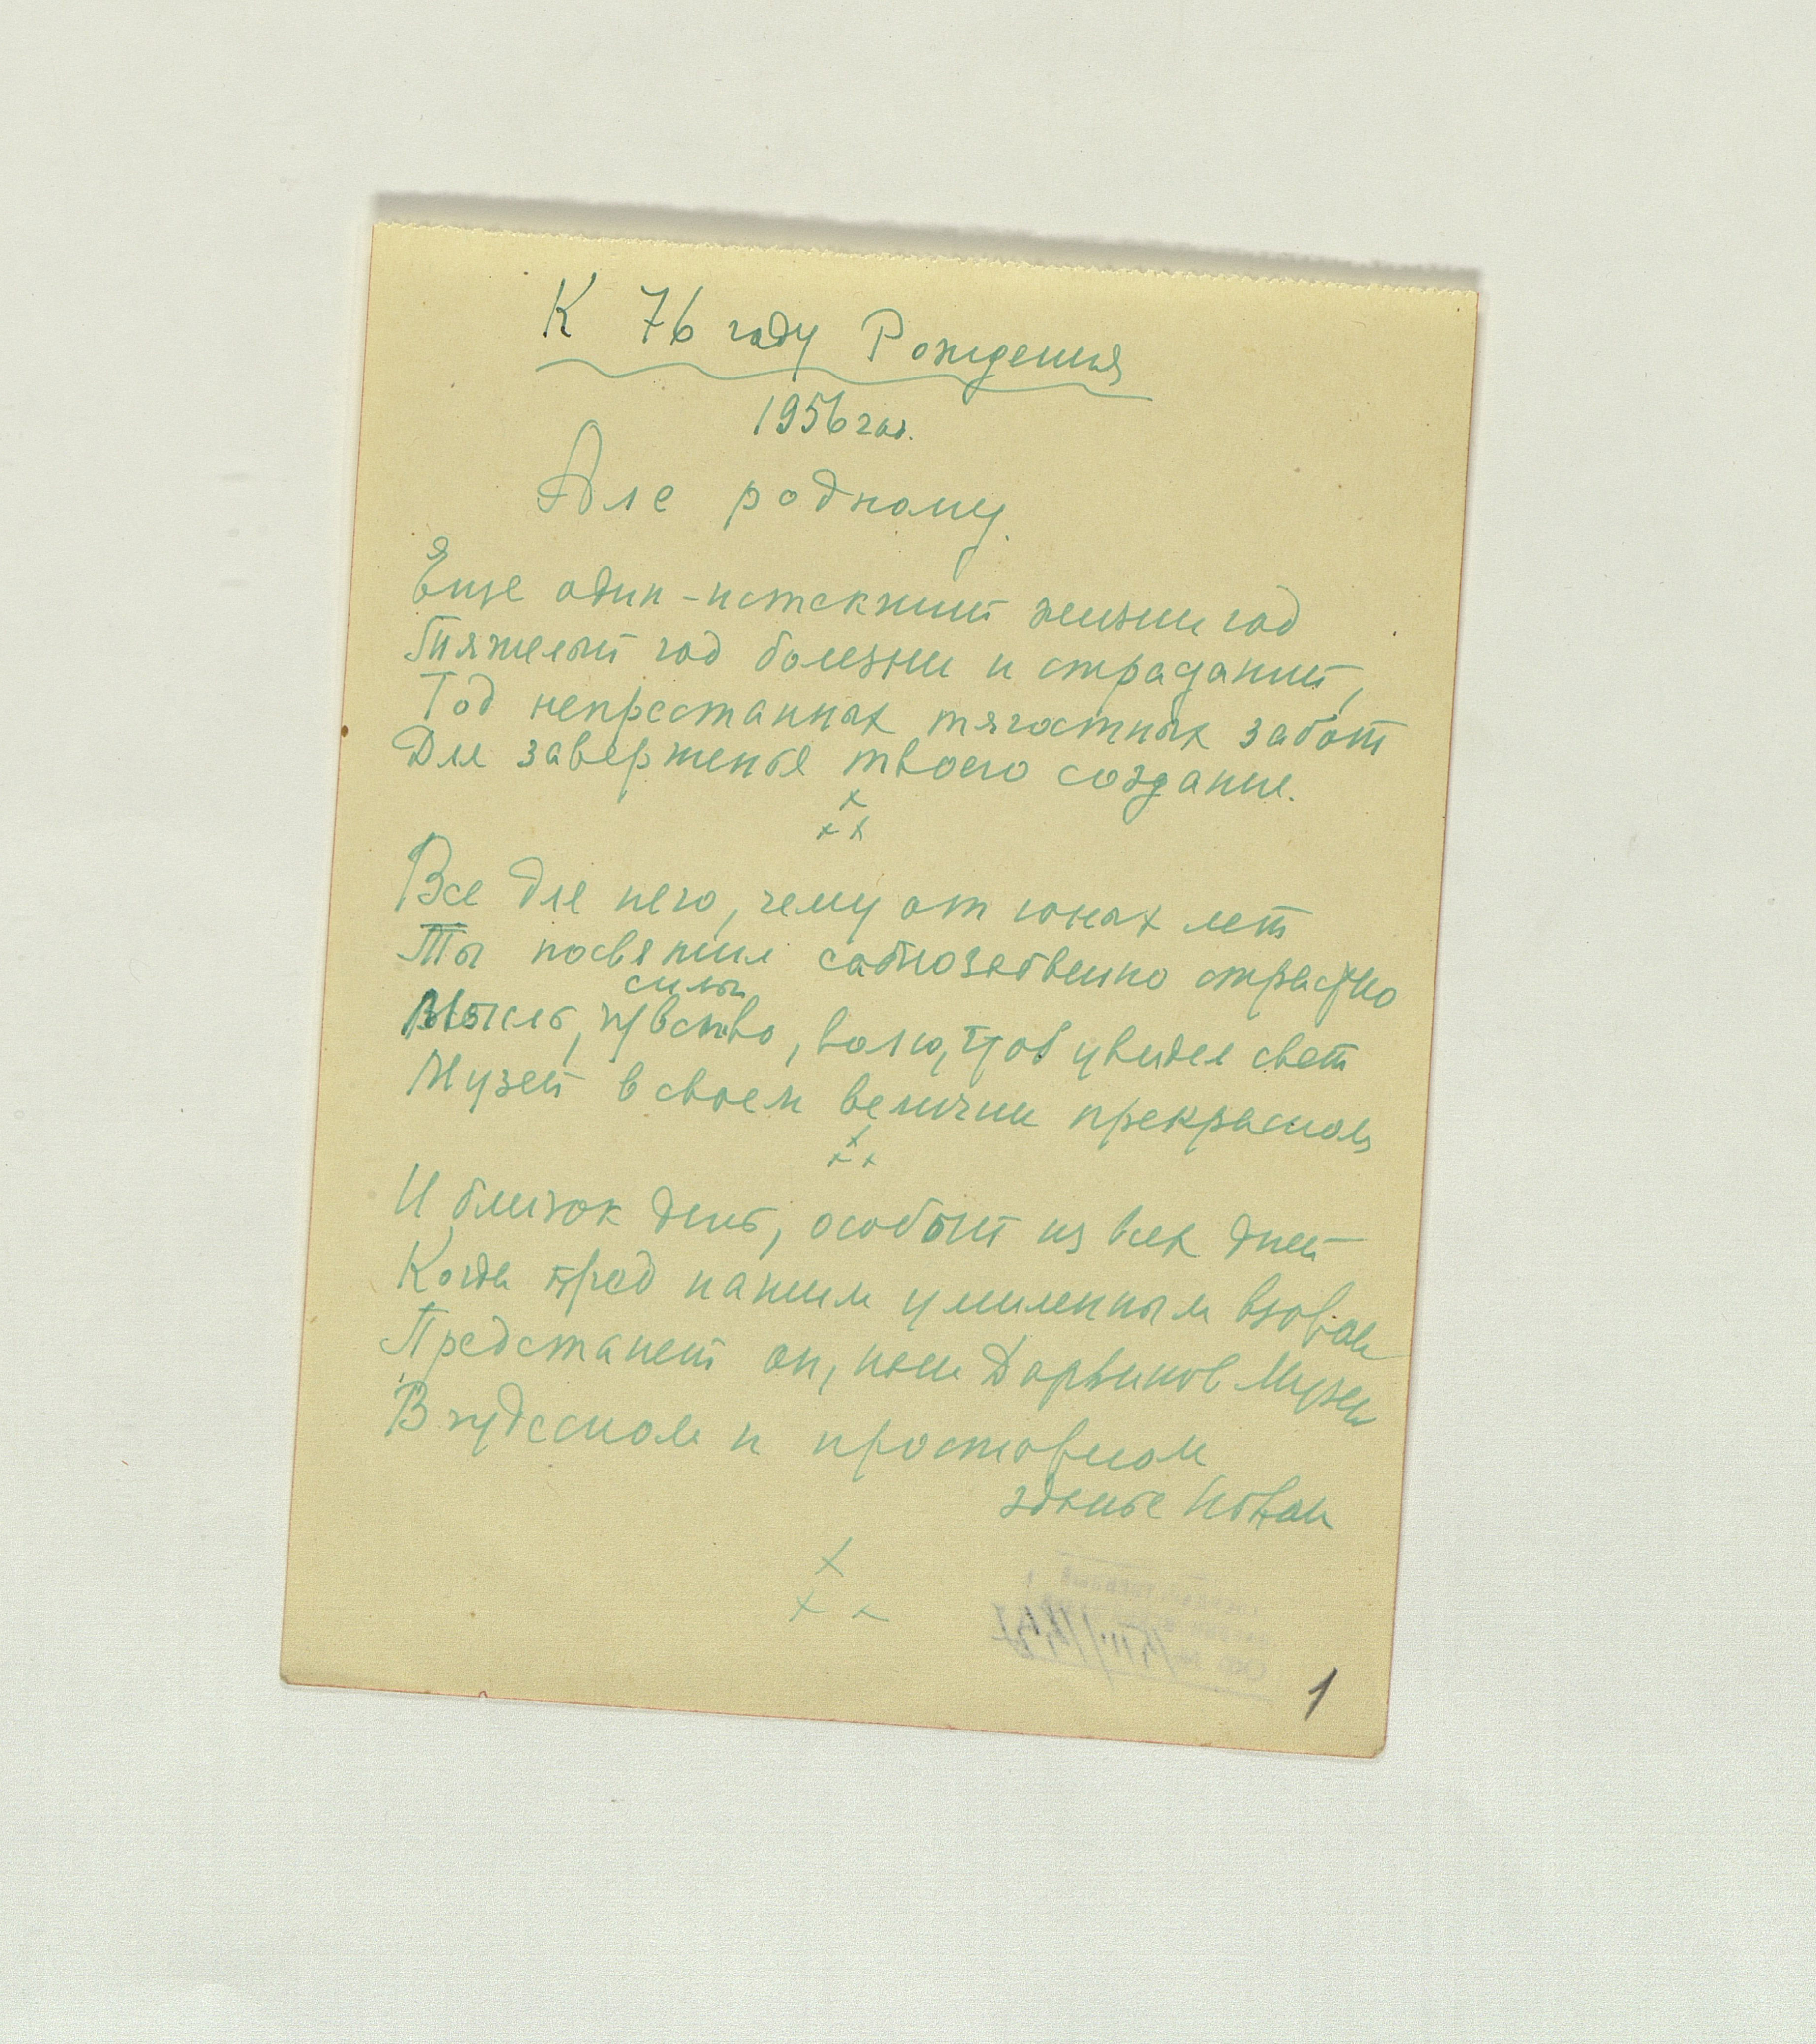 К 76 году Рождения
1956 год.
Але родному.
Еще один - истекший жизни год
Тяжелый год болезни и страданий,
Год непрестанных тягостных забот
Для завершенья твоего создания.
х
х х
Все для него, чему от юных лет
Ты посвятил самозабвенно страстно
силы
Мысль, чувство, волю, чтоб увидел свет
Музей в своем величии прекрасном
х
х х
И близок день, особый из всех дней
Когда пред нашим умиленным взором
Предстанет он, наш Дарвинов Музей
В чудесном и просторном
зданье новом
х
х х
1